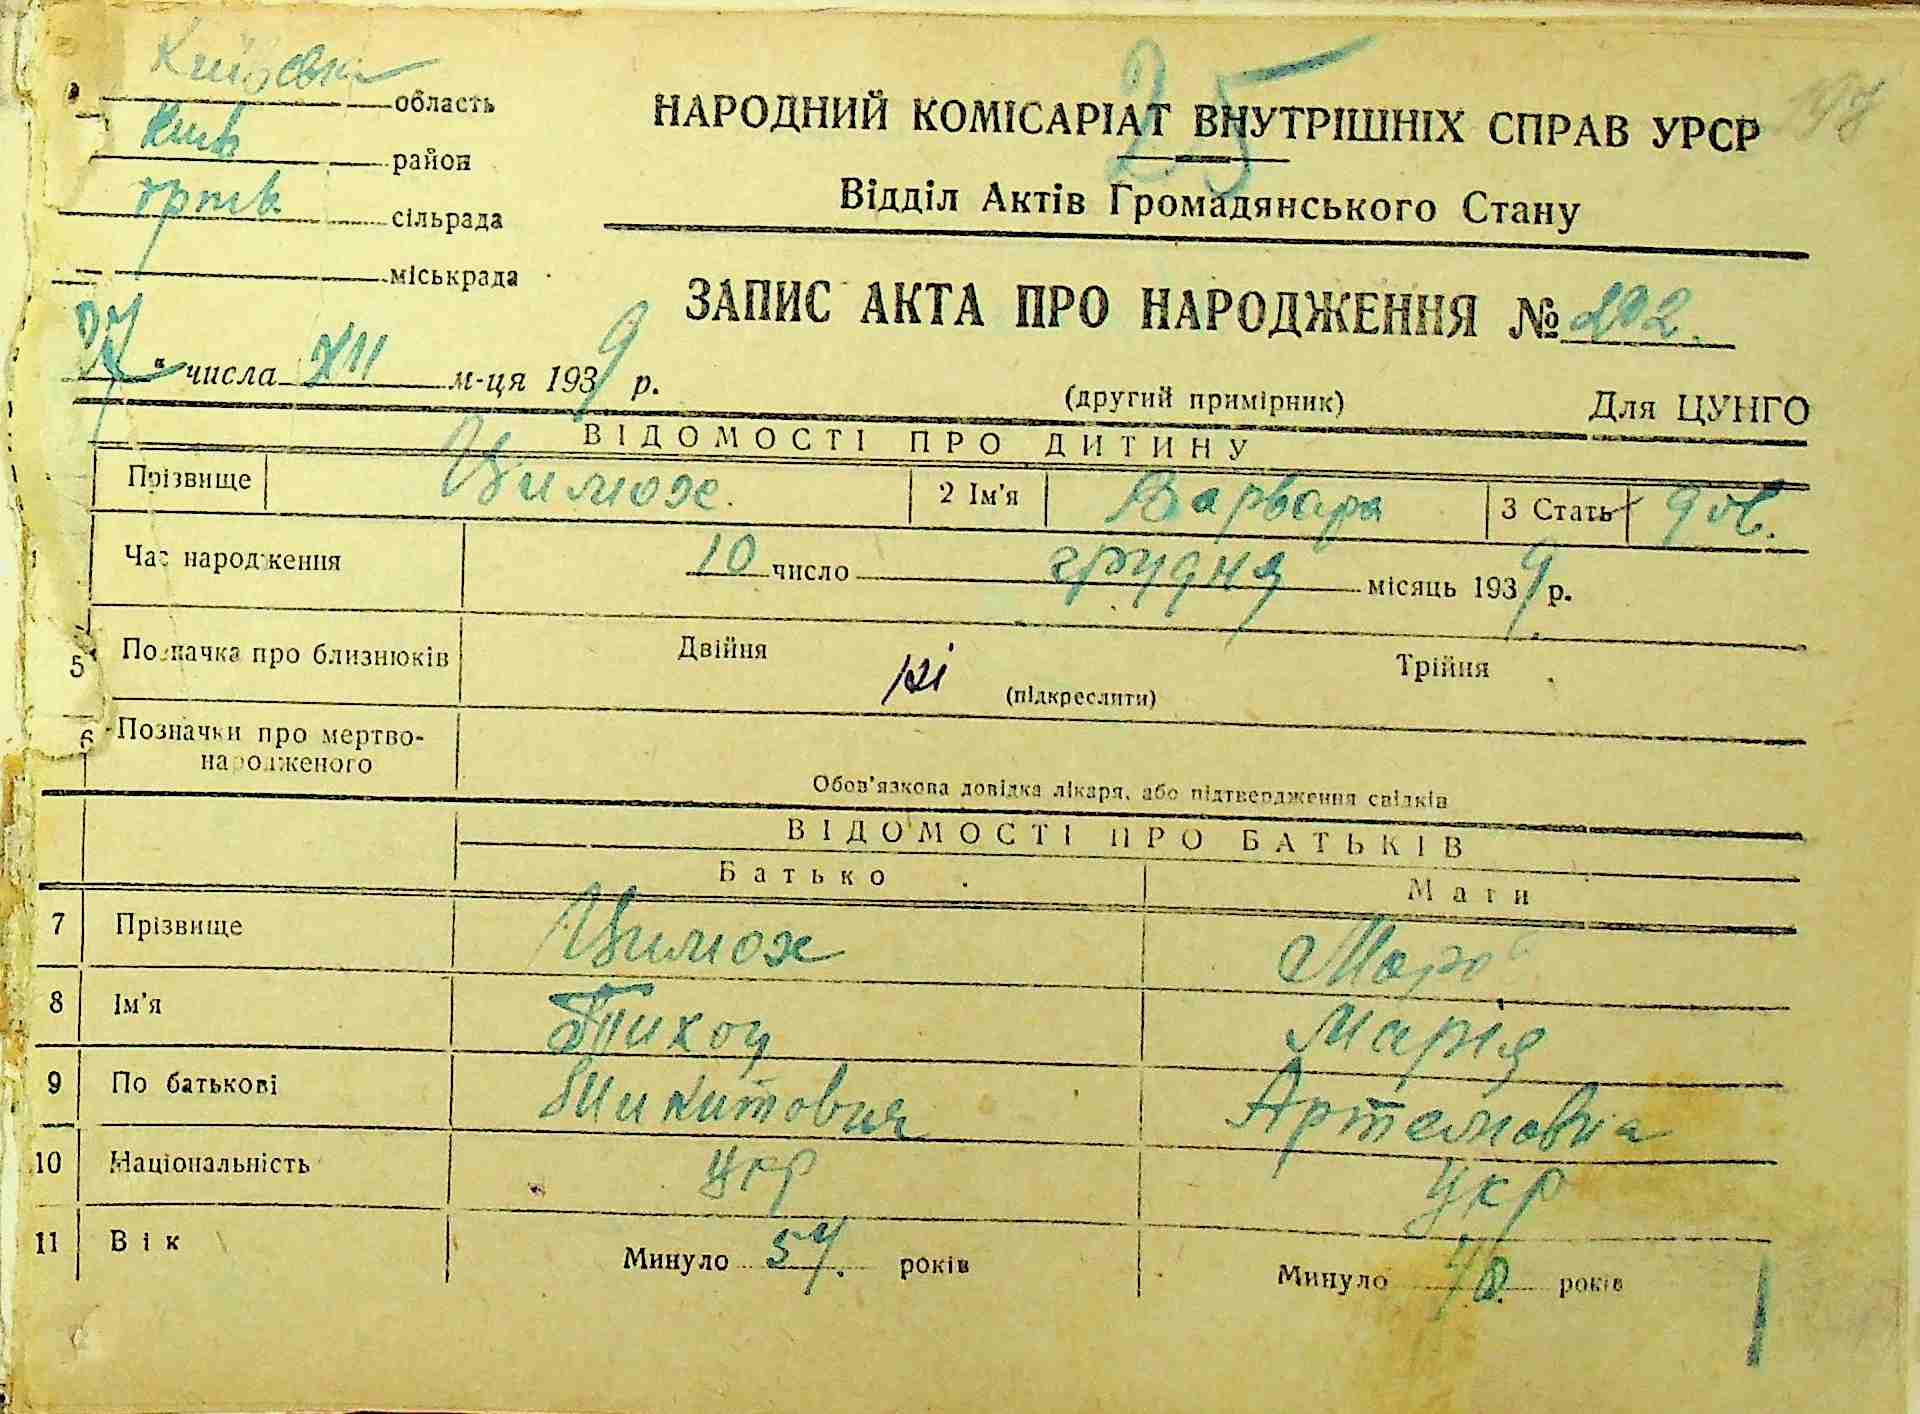 Київська область
Київ район
сільрада
міськрада
НАРОДНИЙ КОМІСАРІАТ ВНУТРІШНІХ СПРАВ УРСР
25
Відділ Актів Громадянського Стану
ЗАПИС АКТА ПРО НАРОДЖЕННЯ № 292.
числа XII м-ця 1939 р.
(другий примірник) Для ЦУНГО
ВІДОМОСТІ ПРО ДИТИНУ
Прізвище 2 Ім'я Варвара 3 Стать дів.
Час народження 10 число грудня місяць 1939 р.
5 Позначка про близнюків Двійня ні (підкреслити) Трійня
6 Позначки про мертво-
народженого
Обов'язкова довідка лікаря, або підтвердження свідків
ВІДОМОСТІ ПРО БАТЬКІВ
Батько Мати
7 Прізвище
8 Ім'я Тихон Марія
9 По батькові Микитович Артемовна
10 Національність Укр Укр
11 Вік Минуло 54. років Минуло 40. років